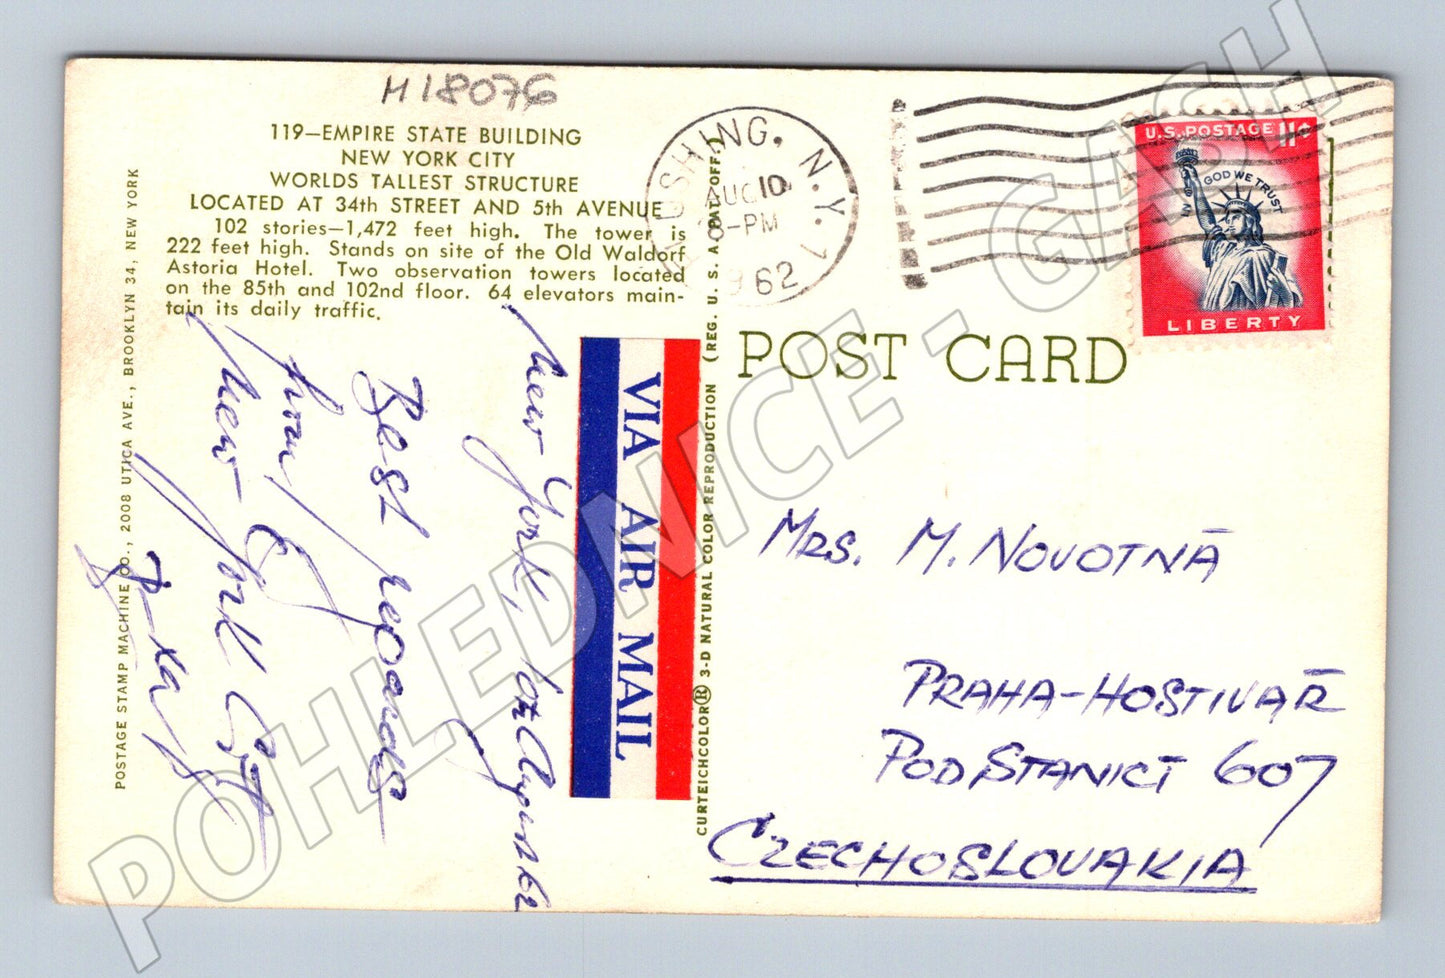 H18076
119—EMPIRE STATE BUILDING
NEW YORK CITY
WORLDS TALLEST STRUCTURE
LOCATED AT 34th STREET AND 5th AVENUE
102 stories—1,472 feet high. The tower is
222 feet high. Stands on site of the Old Waldorf
Astoria Hotel. Two observation towers located
on the 85th and 102nd floor. 64 elevators main-
tain its daily traffic.
POSTAGE STAMP MACHINE CO., 2008 UTICA AVE., BROOKLYN 34, NEW YORK
New York,
Best regards
from
New York City
VIA AIR MAIL
CURTEICHCOLOR® 3-D NATURAL COLOR REPRODUCTION (REG. U. S. A. PAT. OFF.)
FLUSHING, N.Y. 1
AUG 10
PM
1962
U.S. POSTAGE 11¢
IN GOD WE TRUST
LIBERTY
POST CARD
MRS. M. NOVOTNÁ
PRAHA-HOSTIVAŘ
POD STANICÍ 607
CZECHOSLOVAKIA
POHLEDNICE - GASH